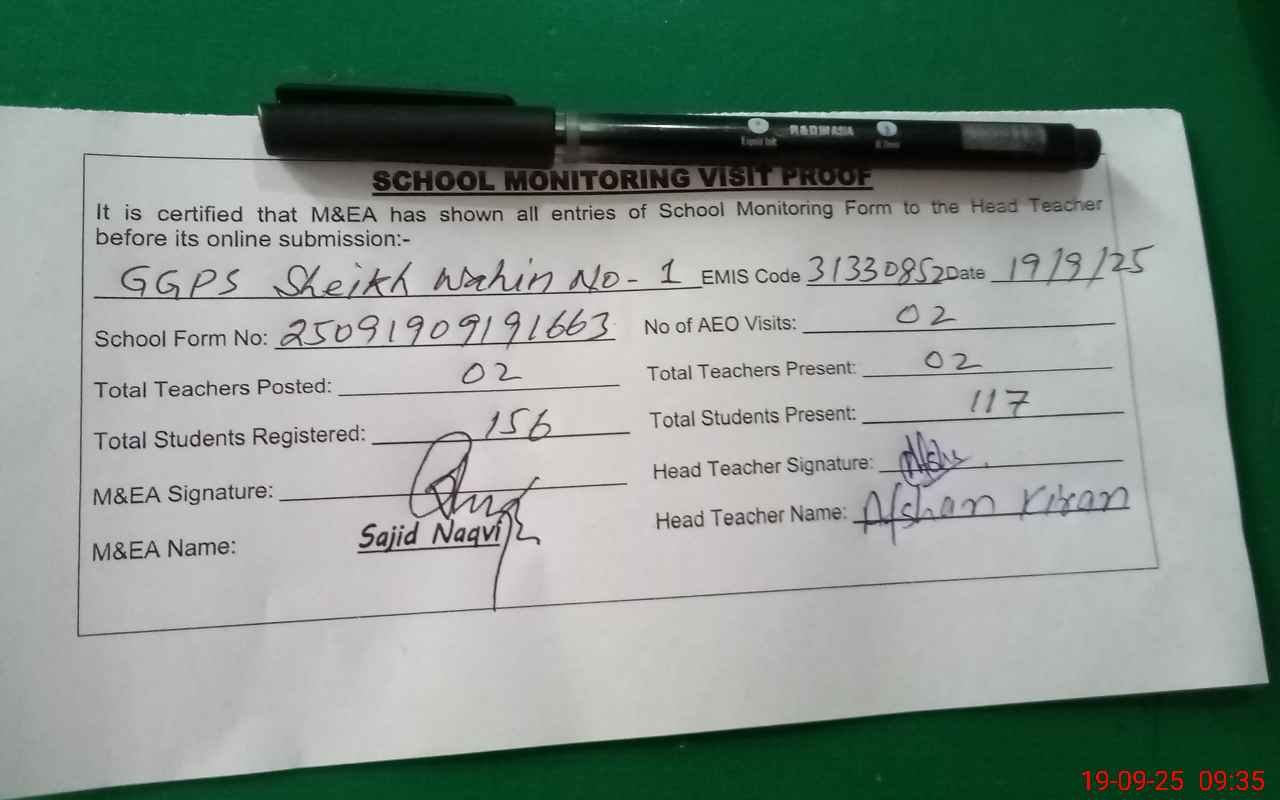 Liquid Ink R&D IN ASIA 0.7mm
SCHOOL MONITORING VISIT PROOF
It is certified that M&EA has shown all entries of School Monitoring Form to the Head Teacher
before its online submission:-
GGPS Sheikh Wahin No-1 EMIS Code 31330852 Date 19/9/25
School Form No: 25091909191663 No of AEO Visits: 02
Total Teachers Posted: 02 Total Teachers Present: 02
Total Students Registered: 156 Total Students Present: 117
M&EA Signature: Head Teacher Signature: Afshu
M&EA Name: Sajid Naqvi Head Teacher Name: Afshan Kiran
19-09-25 09:35